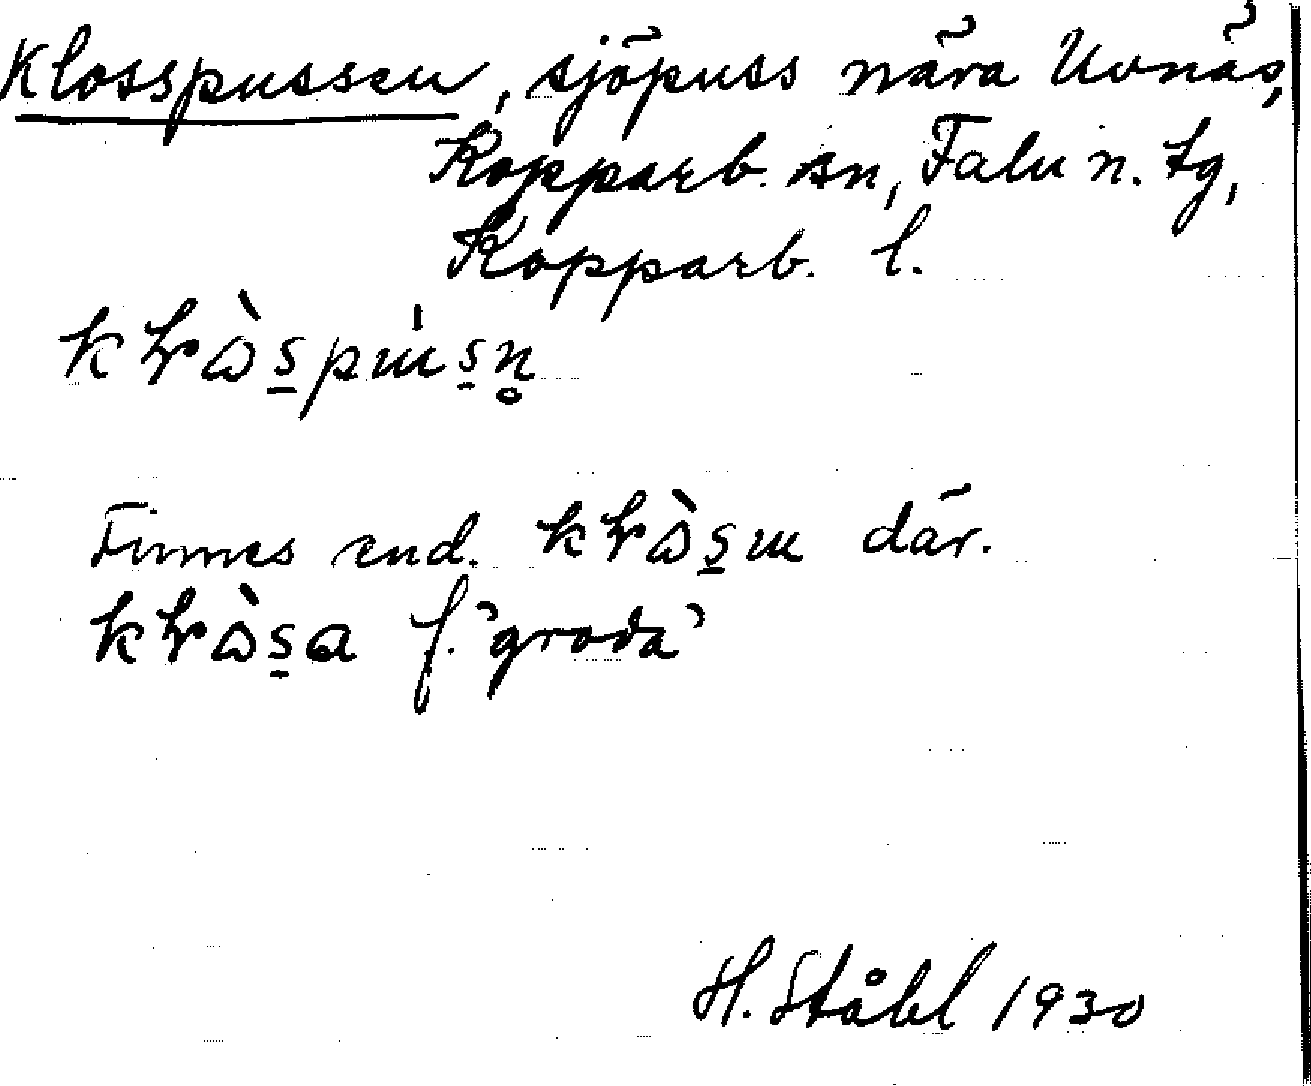 Klosspussen, sjöpuss nära Uvnäs,
Kopparb. sn, Falu n. tg,
Kopparb. l.
Finnes end. där.
f. "groda"
H. Ståhl 1930